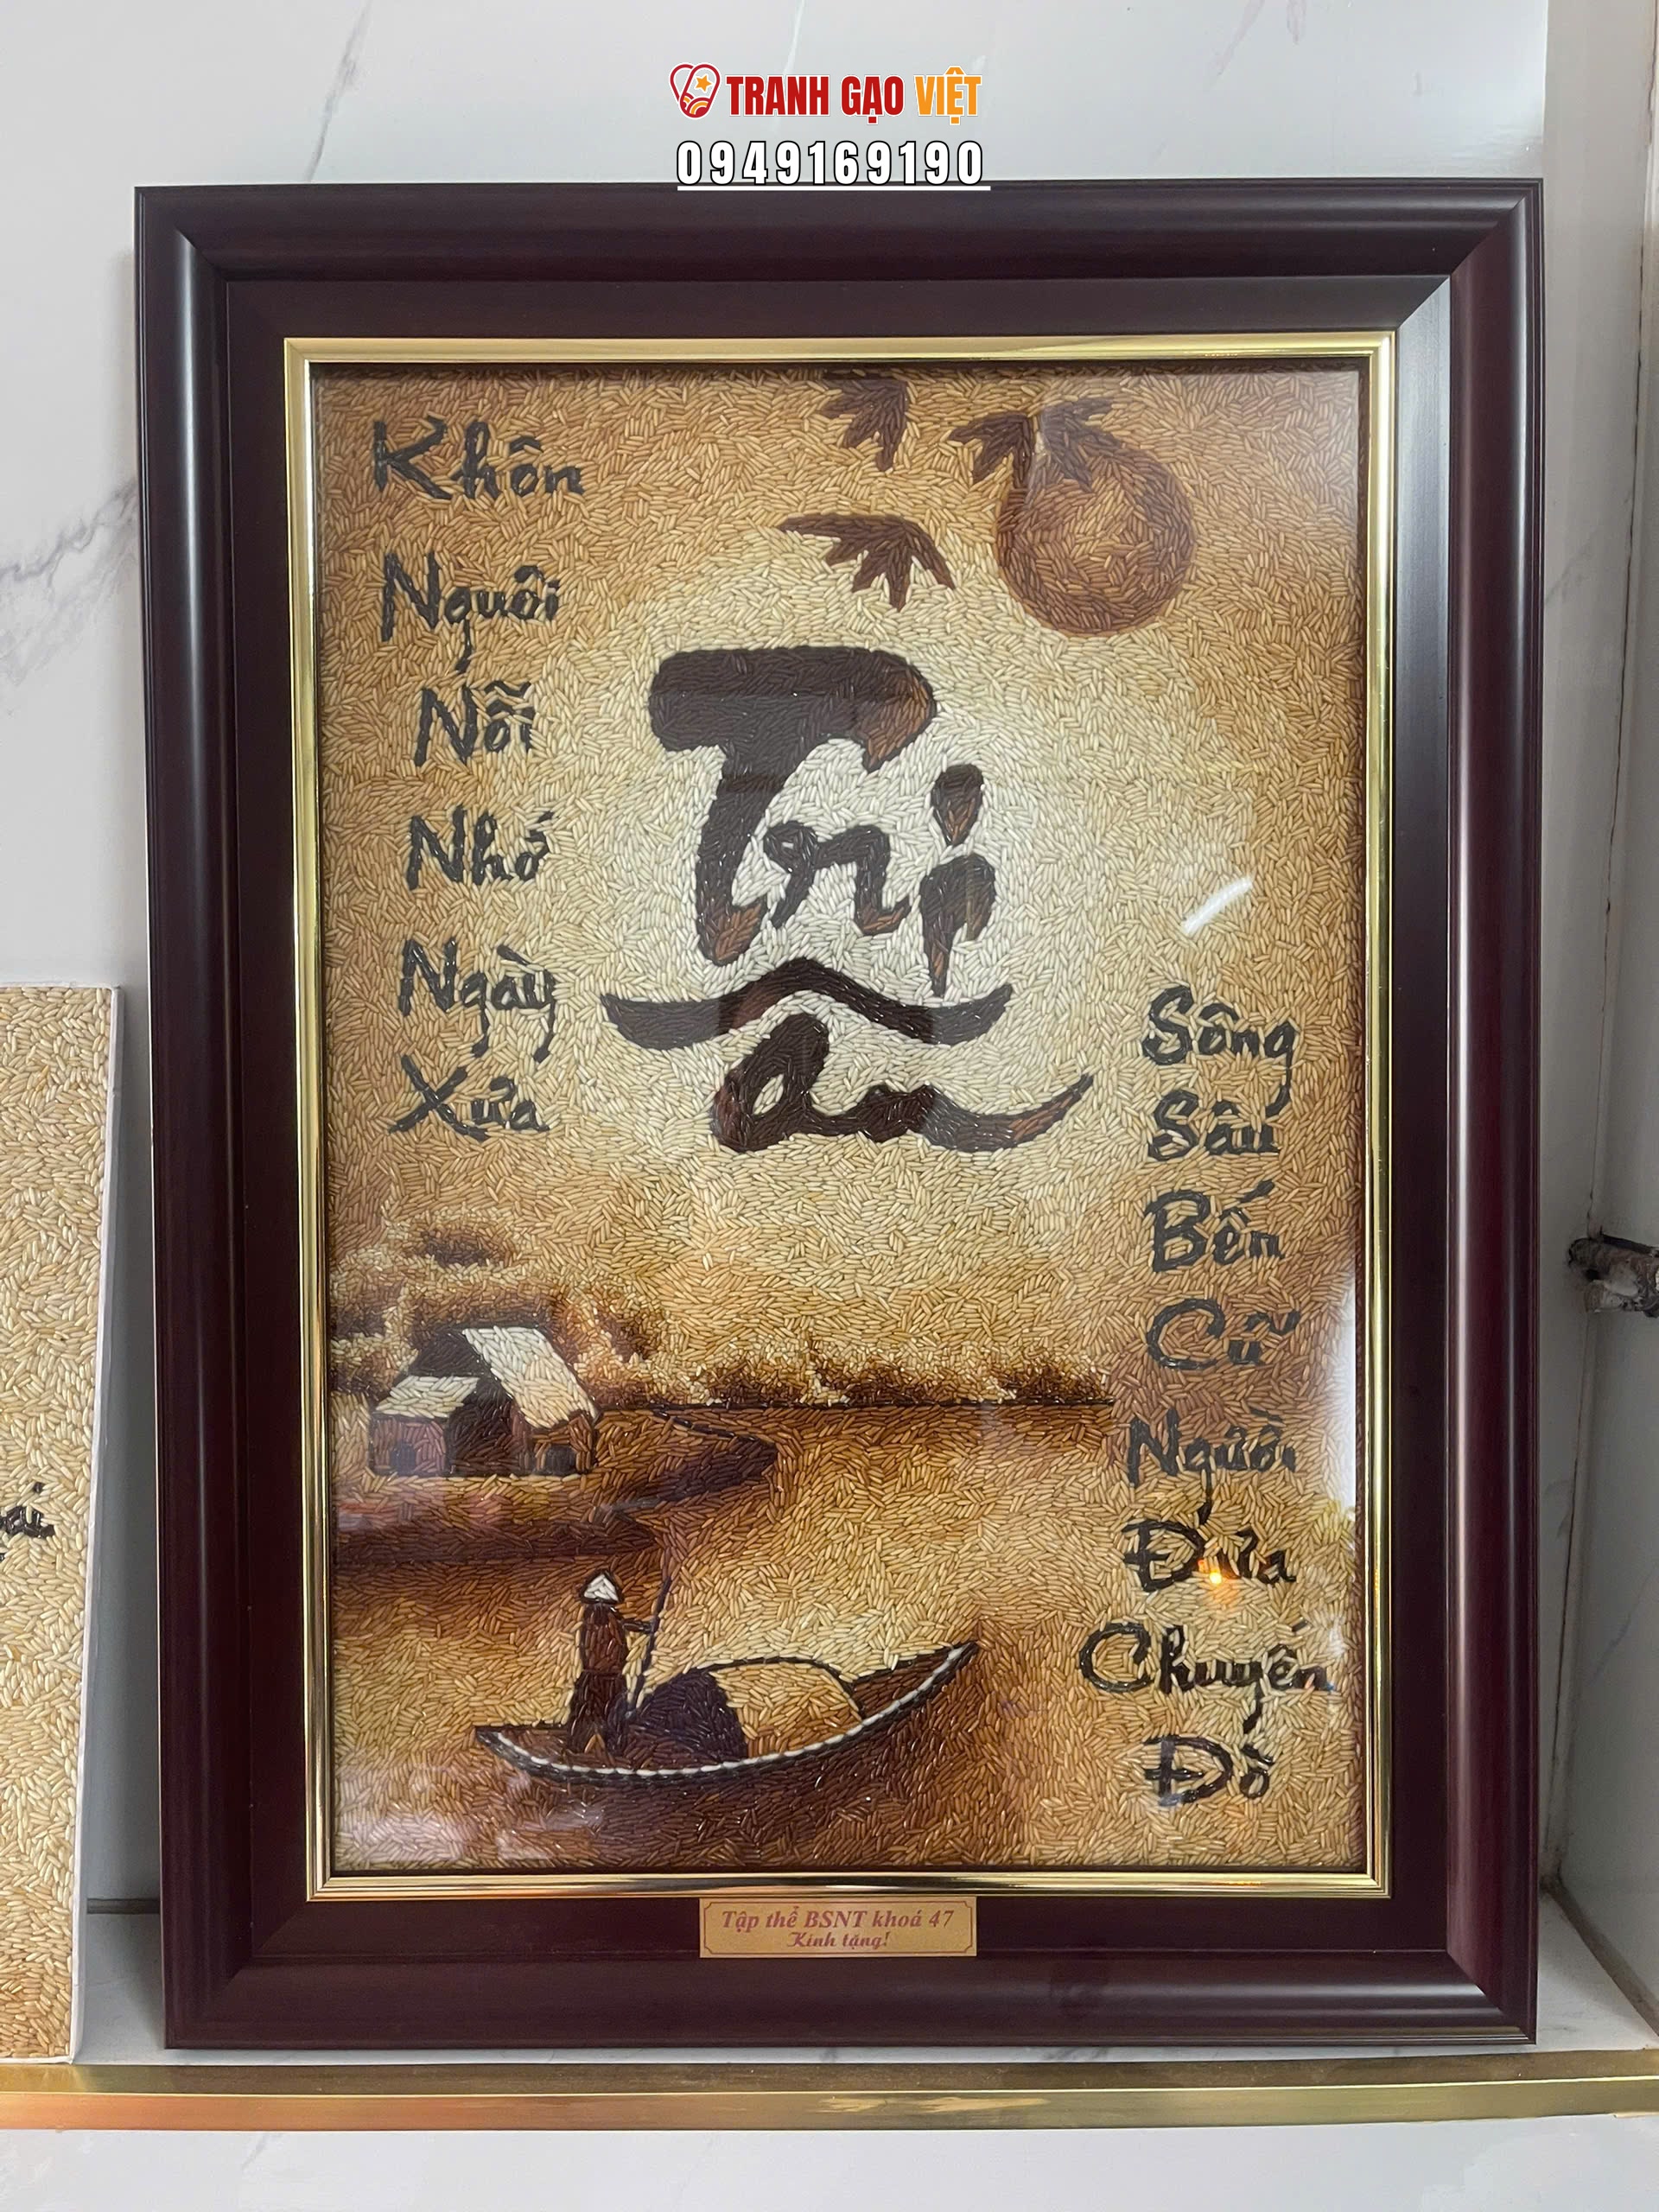 TRANH GẠO VIỆT
0949169190
Khôn
Nguôi
Nỗi
Nhớ
Ngày
Xưa
Tri
ân
Sông
Sâu
Bến
Cũ
Người
Đưa
Chuyến
Đò
Tập thể BSNT khoá 47
Kính tặng!